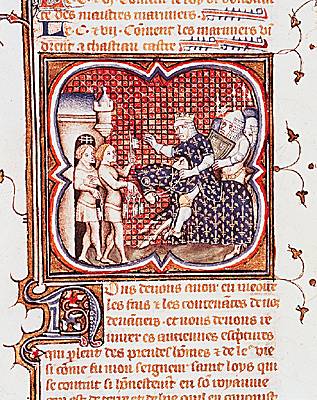 te des maistres mariniers.
Le .C. & vij. Coment les mariniers vi
drent a chastiau castre
Ous deuons auoir en memoire
les fais & les contenances de nos
deuanciers. et nous deuons re
mirer es anciennes escriptures
qui plent des preudes homes & de le vie
si come fu mon seigneur saint loys qui
se contint si honestement en so royaume